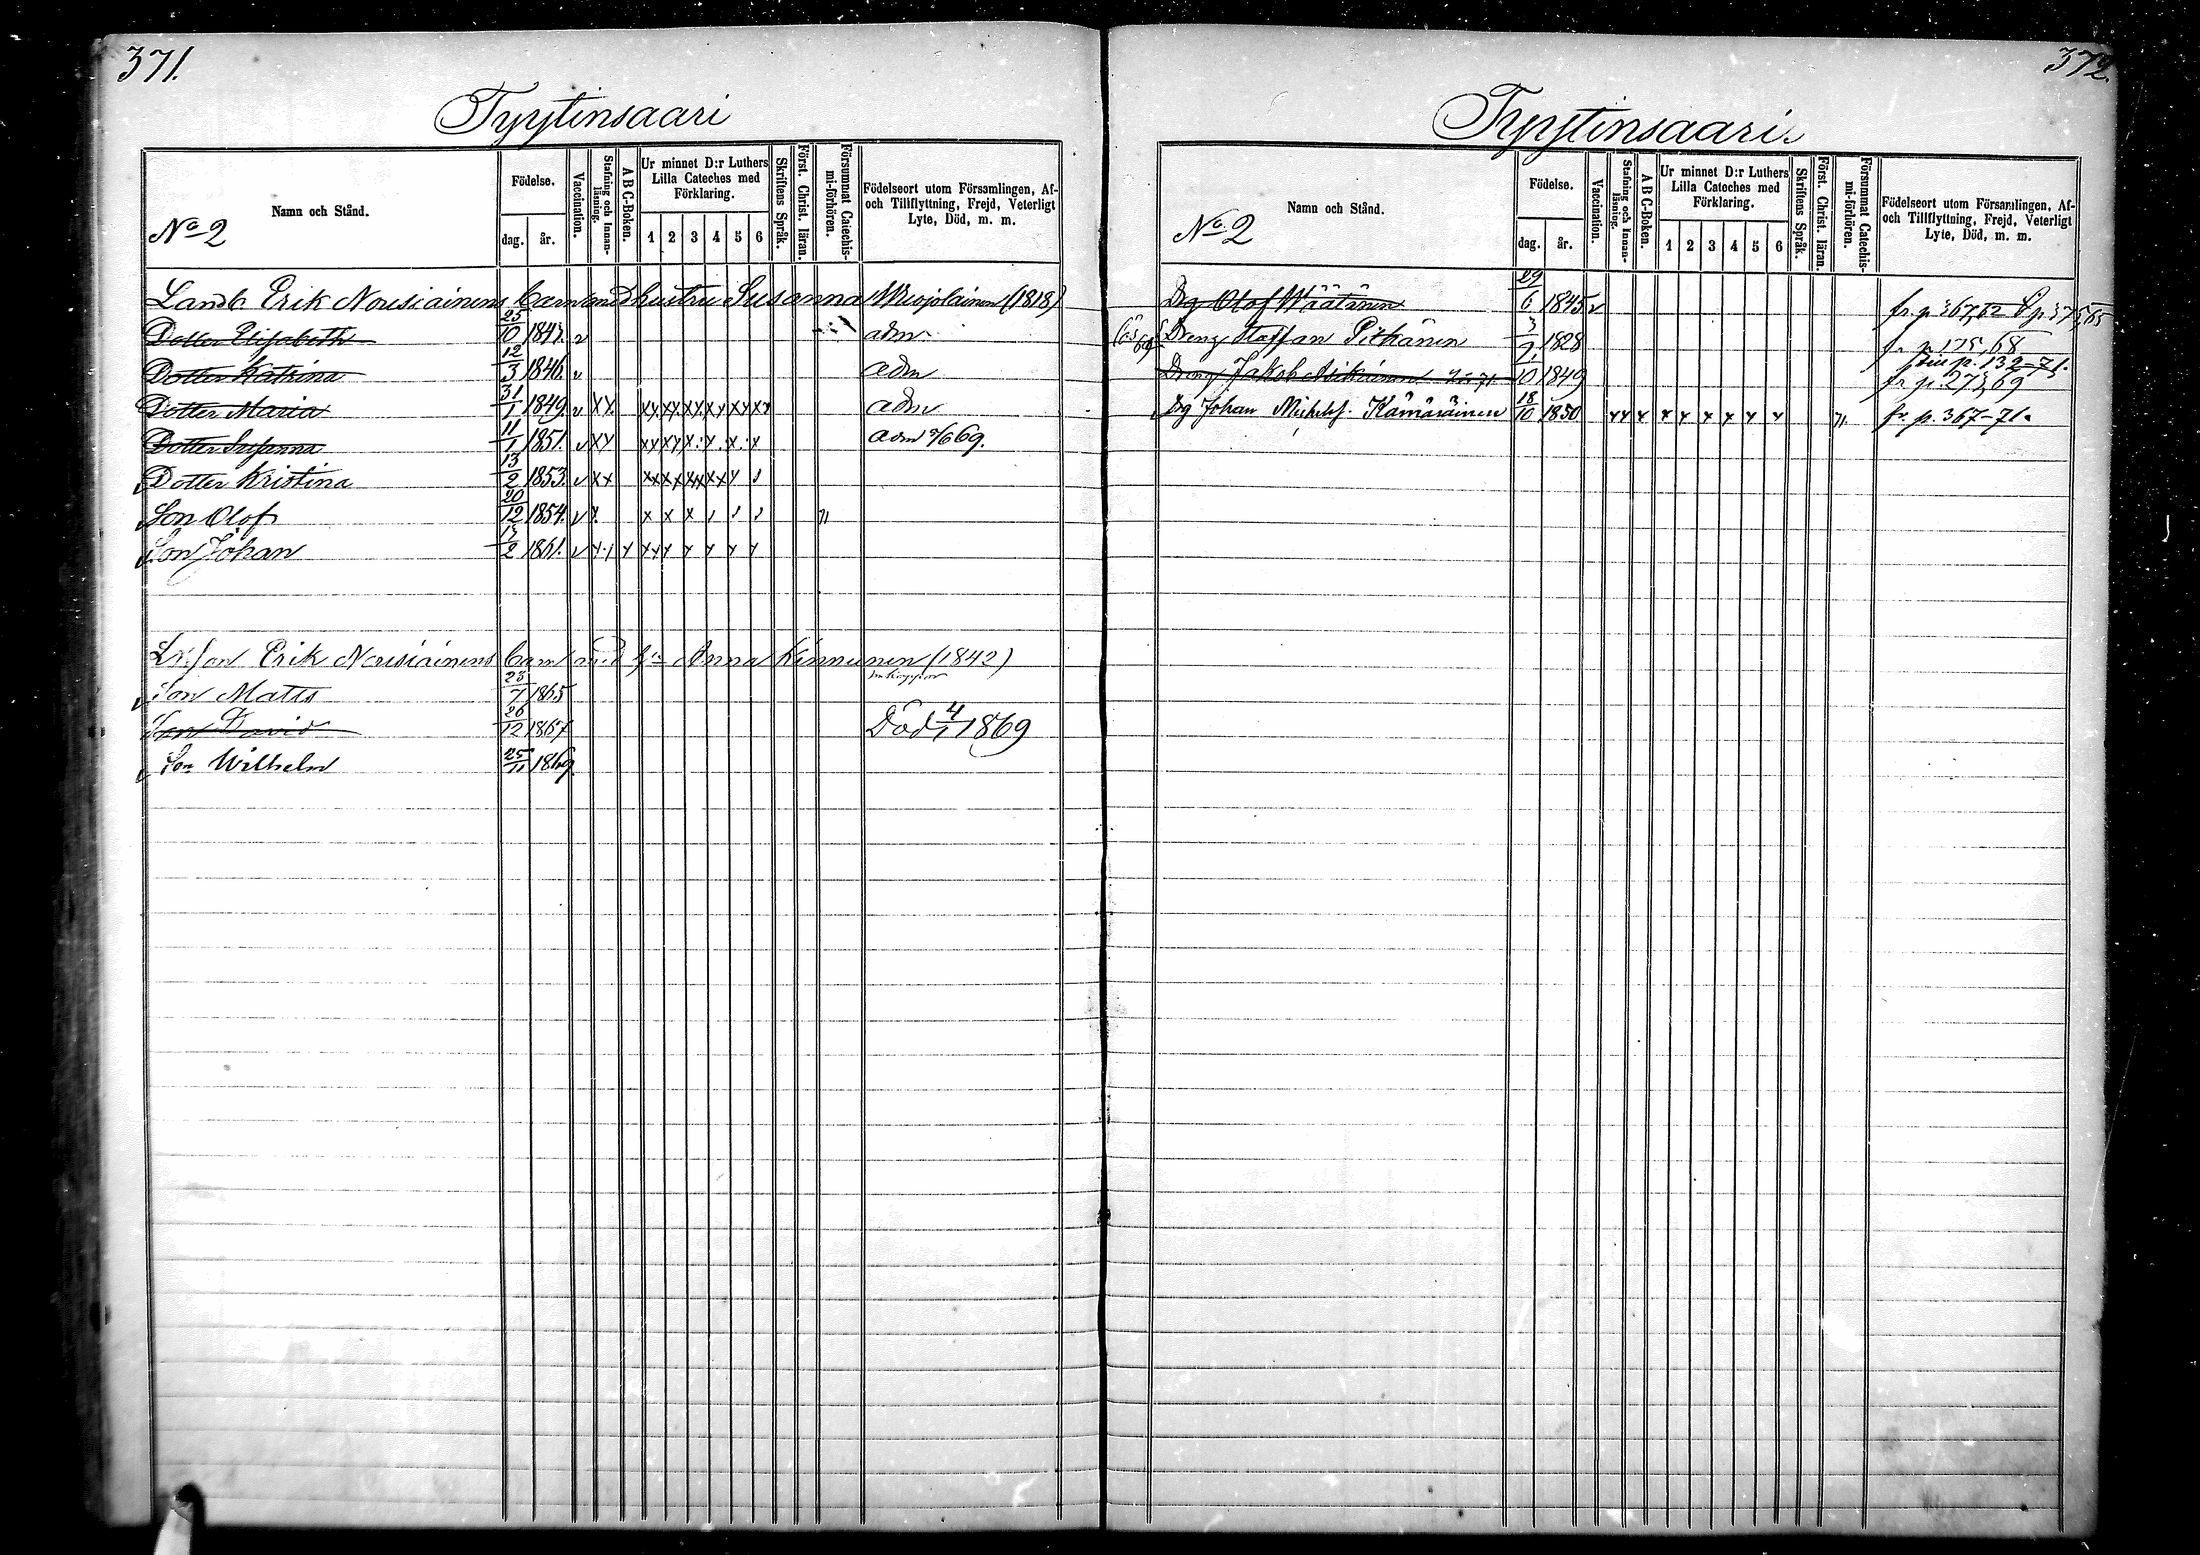 371.
Tyytinsaari
No 2
Namn och Stånd.
Födelse.
dag. år.
Vaccination.
Stafning och Innanläsning.
A B C-Boken.
Ur minnet D:r Luthers Lilla Cateches med Förklaring.
1 2 3 4 5 6
Skriftens Språk.
Först. Christ. läran.
Försummat Catechismi-förhören.
Födelseort utom Församlingen, Af- och Tillflyttning, Frejd, Veterligt Lyte, Död, m. m.
Landb. Erik Nousiainens barn med hustru Susanna Miojolainen (1818)
Dotter Elisabeth 25/10 1843. v adm.
Dotter Katrina 12/3 1846. v adm
Dotter Maria 31/1 1849. v xx xx xx xx xx xx xx adm
Dotter Susanna 11/1 1851. v xx xx xx x x x x adm 69.
Dotter Kristina 13/2 1853. v xx xx xx xx xx x
Son Olof 20/12 1854. v x x x x
Son Johan 13/2 1861. v x x xx x x x x x
Erik Nousiainens barn med Anna Kinnunen (1842)
Son Matts 23/7 1865
Son David 26/12 1867 Död 4/1 1869
Son Wilhelm 25/11 1869
372.
Tyytinsaari.
No 2
Namn och Stånd.
Födelse.
dag. år.
Vaccination.
Stafning och Innanläsning.
A B C-Boken.
Ur minnet D:r Luthers Lilla Cateches med Förklaring.
1 2 3 4 5 6
Skriftens Språk.
Först. Christ. läran.
Försummat Catechismi-förhören.
Födelseort utom Församlingen, Af- och Tillflyttning, Frejd, Veterligt Lyte, Död, m. m.
Drg Olof Wäätänen 29/6 1845 v fr. p. 367,62
Dreng Staffan Pitkänen 3/2 1828 fr p 175,68
Dreng Jakob 10 1849 p. 132-71. fr p. 273,69
Drg Johan Michelsf. Kämäräinen 18/10 1850 xx x x x x x x x fr. p. 367-71.